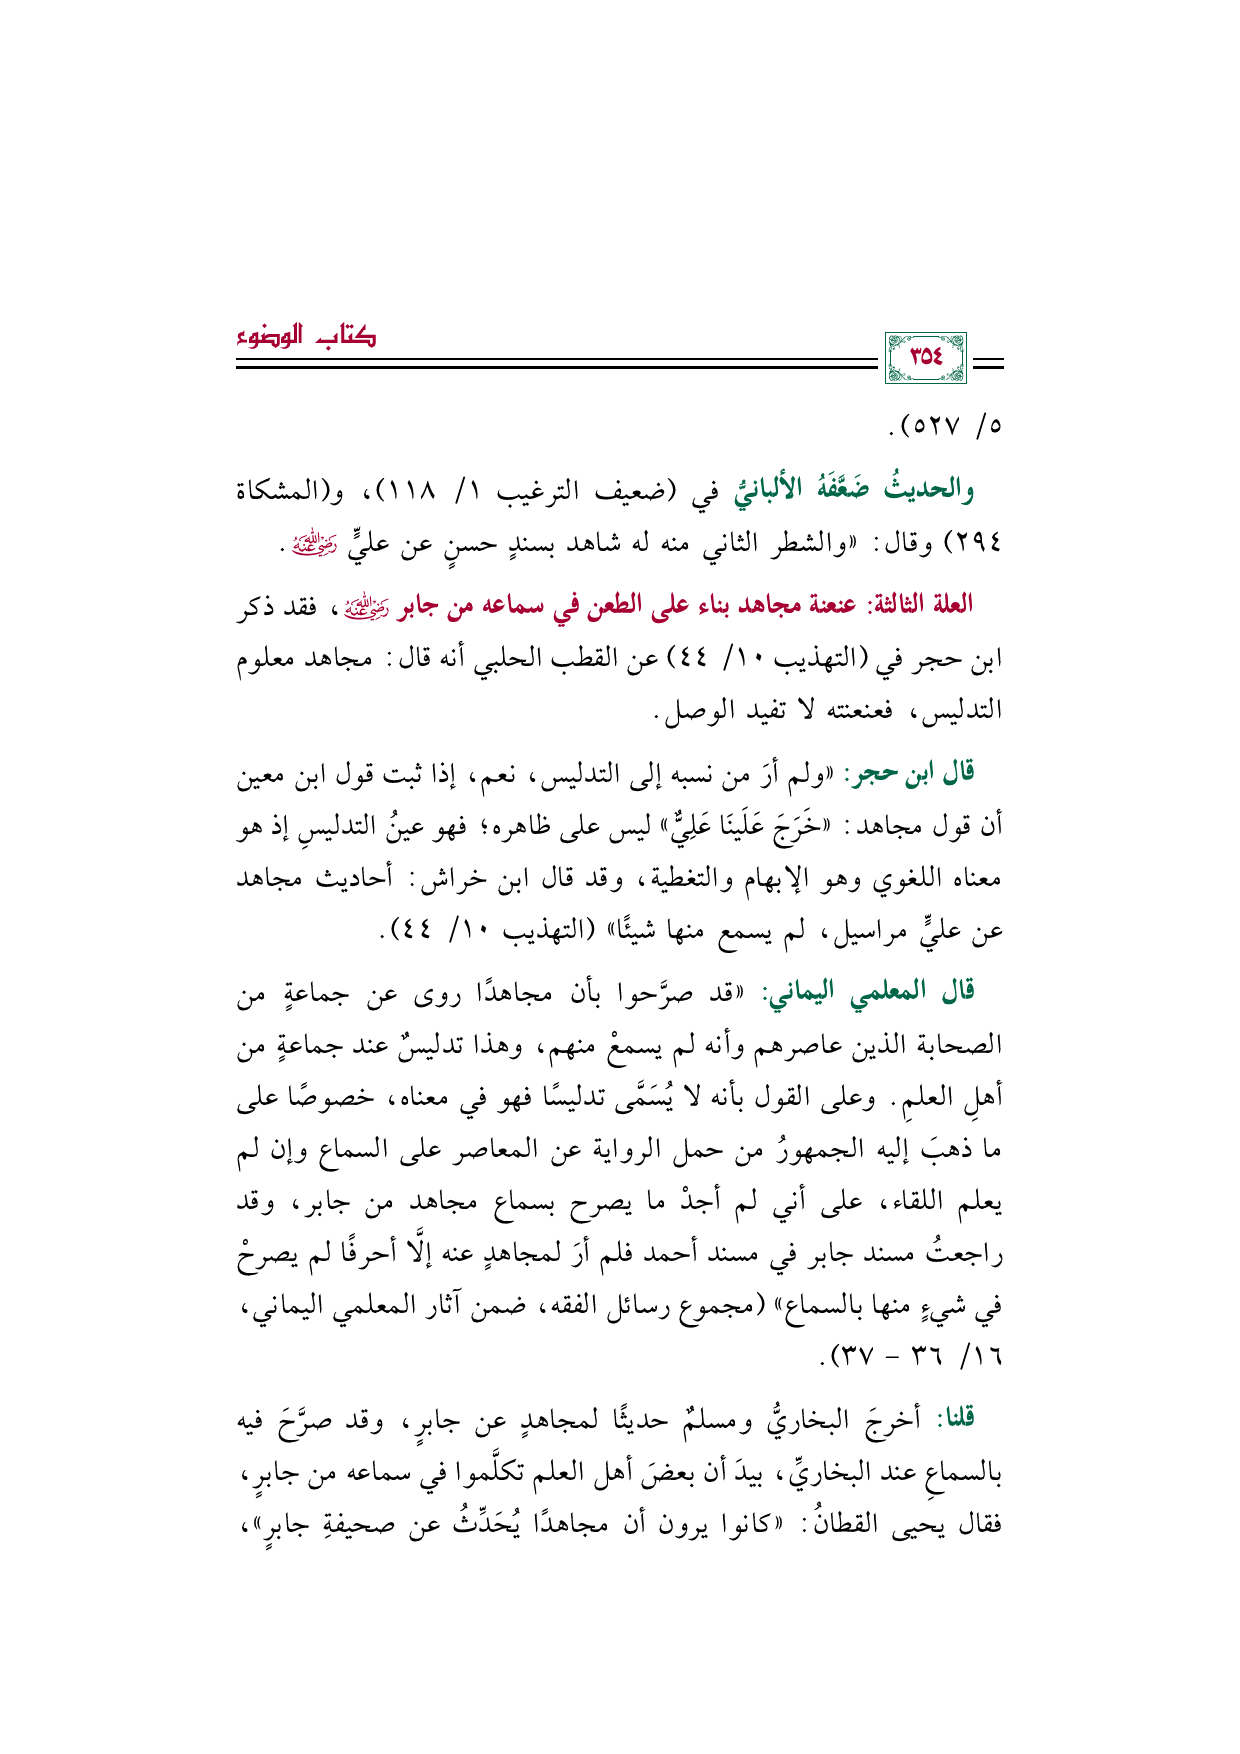 كتاب الوضوء
٣٥٤
٥/ ٥٢٧).
والحديثُ ضَعَّفَهُ الألبانيُّ في (ضعيف الترغيب ١/ ١١٨)، و(المشكاة
٢٩٤) وقال: «والشطر الثاني منه له شاهد بسندٍ حسنٍ عن عليٍّ رضي الله عنه.
العلة الثالثة: عنعنة مجاهد بناء على الطعن في سماعه من جابر رضي الله عنه، فقد ذكر
ابن حجر في (التهذيب ١٠/ ٤٤) عن القطب الحلبي أنه قال: مجاهد معلوم
التدليس، فعنعنته لا تفيد الوصل.
قال ابن حجر: «ولم أرَ من نسبه إلى التدليس، نعم، إذا ثبت قول ابن معين
أن قول مجاهد: «خَرَجَ عَلَينَا عَلِيٌّ» ليس على ظاهره؛ فهو عينُ التدليسِ إذ هو
معناه اللغوي وهو الإبهام والتغطية، وقد قال ابن خراش: أحاديث مجاهد
عن عليٍّ مراسيل، لم يسمع منها شيئًا» (التهذيب ١٠/ ٤٤).
قال المعلمي اليماني: «قد صرَّحوا بأن مجاهدًا روى عن جماعةٍ من
الصحابة الذين عاصرهم وأنه لم يسمعْ منهم، وهذا تدليسٌ عند جماعةٍ من
أهلِ العلمِ. وعلى القول بأنه لا يُسَمَّى تدليسًا فهو في معناه، خصوصًا على
ما ذهبَ إليه الجمهورُ من حمل الرواية عن المعاصر على السماع وإن لم
يعلم اللقاء، على أني لم أجدْ ما يصرح بسماع مجاهد من جابر، وقد
راجعتُ مسند جابر في مسند أحمد فلم أرَ لمجاهدٍ عنه إلَّا أحرفًا لم يصرحْ
في شيءٍ منها بالسماع» (مجموع رسائل الفقه، ضمن آثار المعلمي اليماني،
١٦/ ٣٦ – ٣٧).
قلنا: أخرجَ البخاريُّ ومسلمٌ حديثًا لمجاهدٍ عن جابرٍ، وقد صرَّحَ فيه
بالسماعِ عند البخاريِّ، بيدَ أن بعضَ أهل العلم تكلَّموا في سماعه من جابرٍ،
فقال يحيى القطانُ: «كانوا يرون أن مجاهدًا يُحَدِّثُ عن صحيفةِ جابرٍ»،